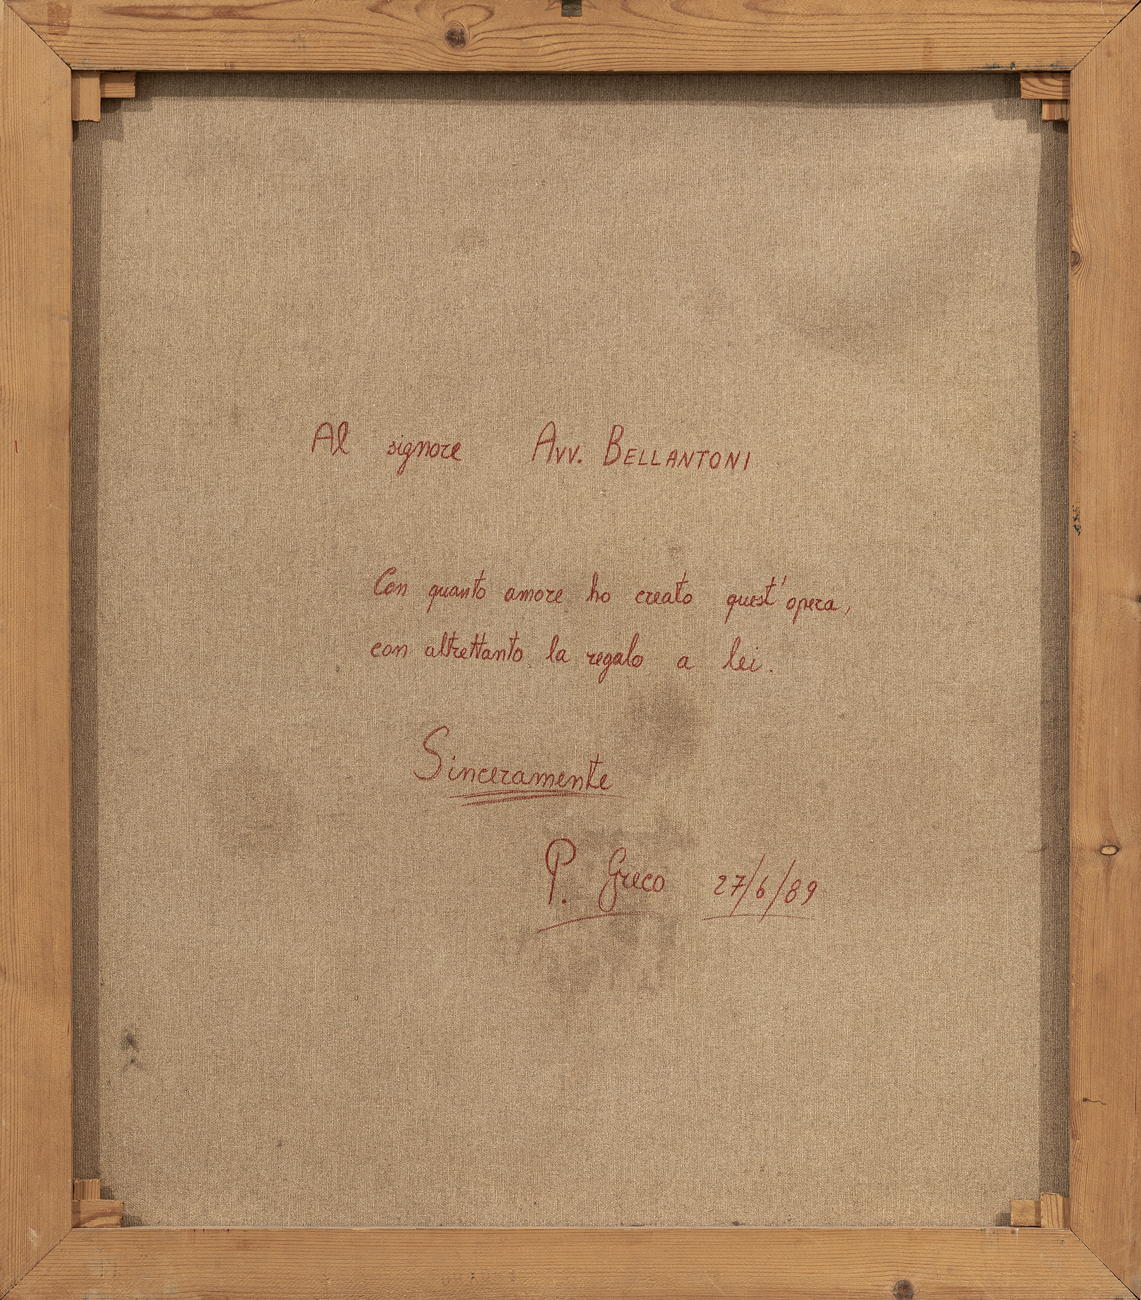 Al signore Avv. BELLANTONI
Con quanto amore ho creato quest'opera,
con altrettanto la regalo a lei.
Sinceramente
P. Greco 27/6/89